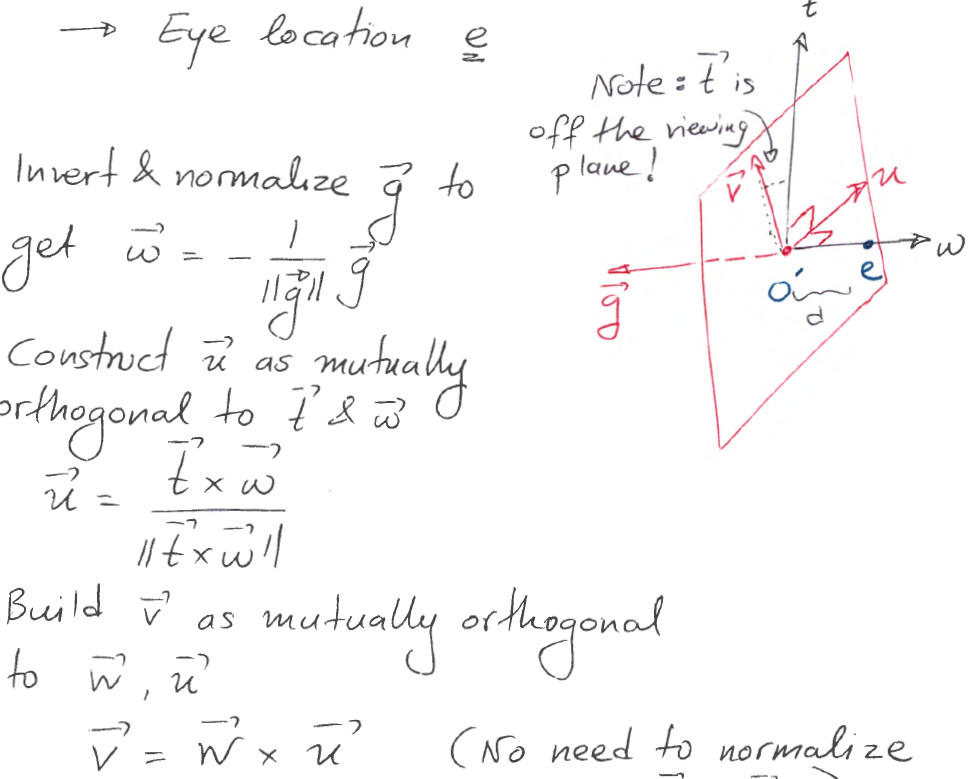 → Eye location e
Invert & normalize g⃗ to
get w⃗ = - 1/||g⃗|| g⃗
Construct u⃗ as mutually
orthogonal to t⃗ & w⃗
u⃗ = t⃗ × w⃗ / ||t⃗ × w⃗||
Build v⃗ as mutually orthogonal
to w⃗, u⃗
v⃗ = w⃗ × u⃗ (No need to normalize
t
Note: t⃗ is
off the viewing
plane!
v⃗
u
w
g⃗
O'
e
d